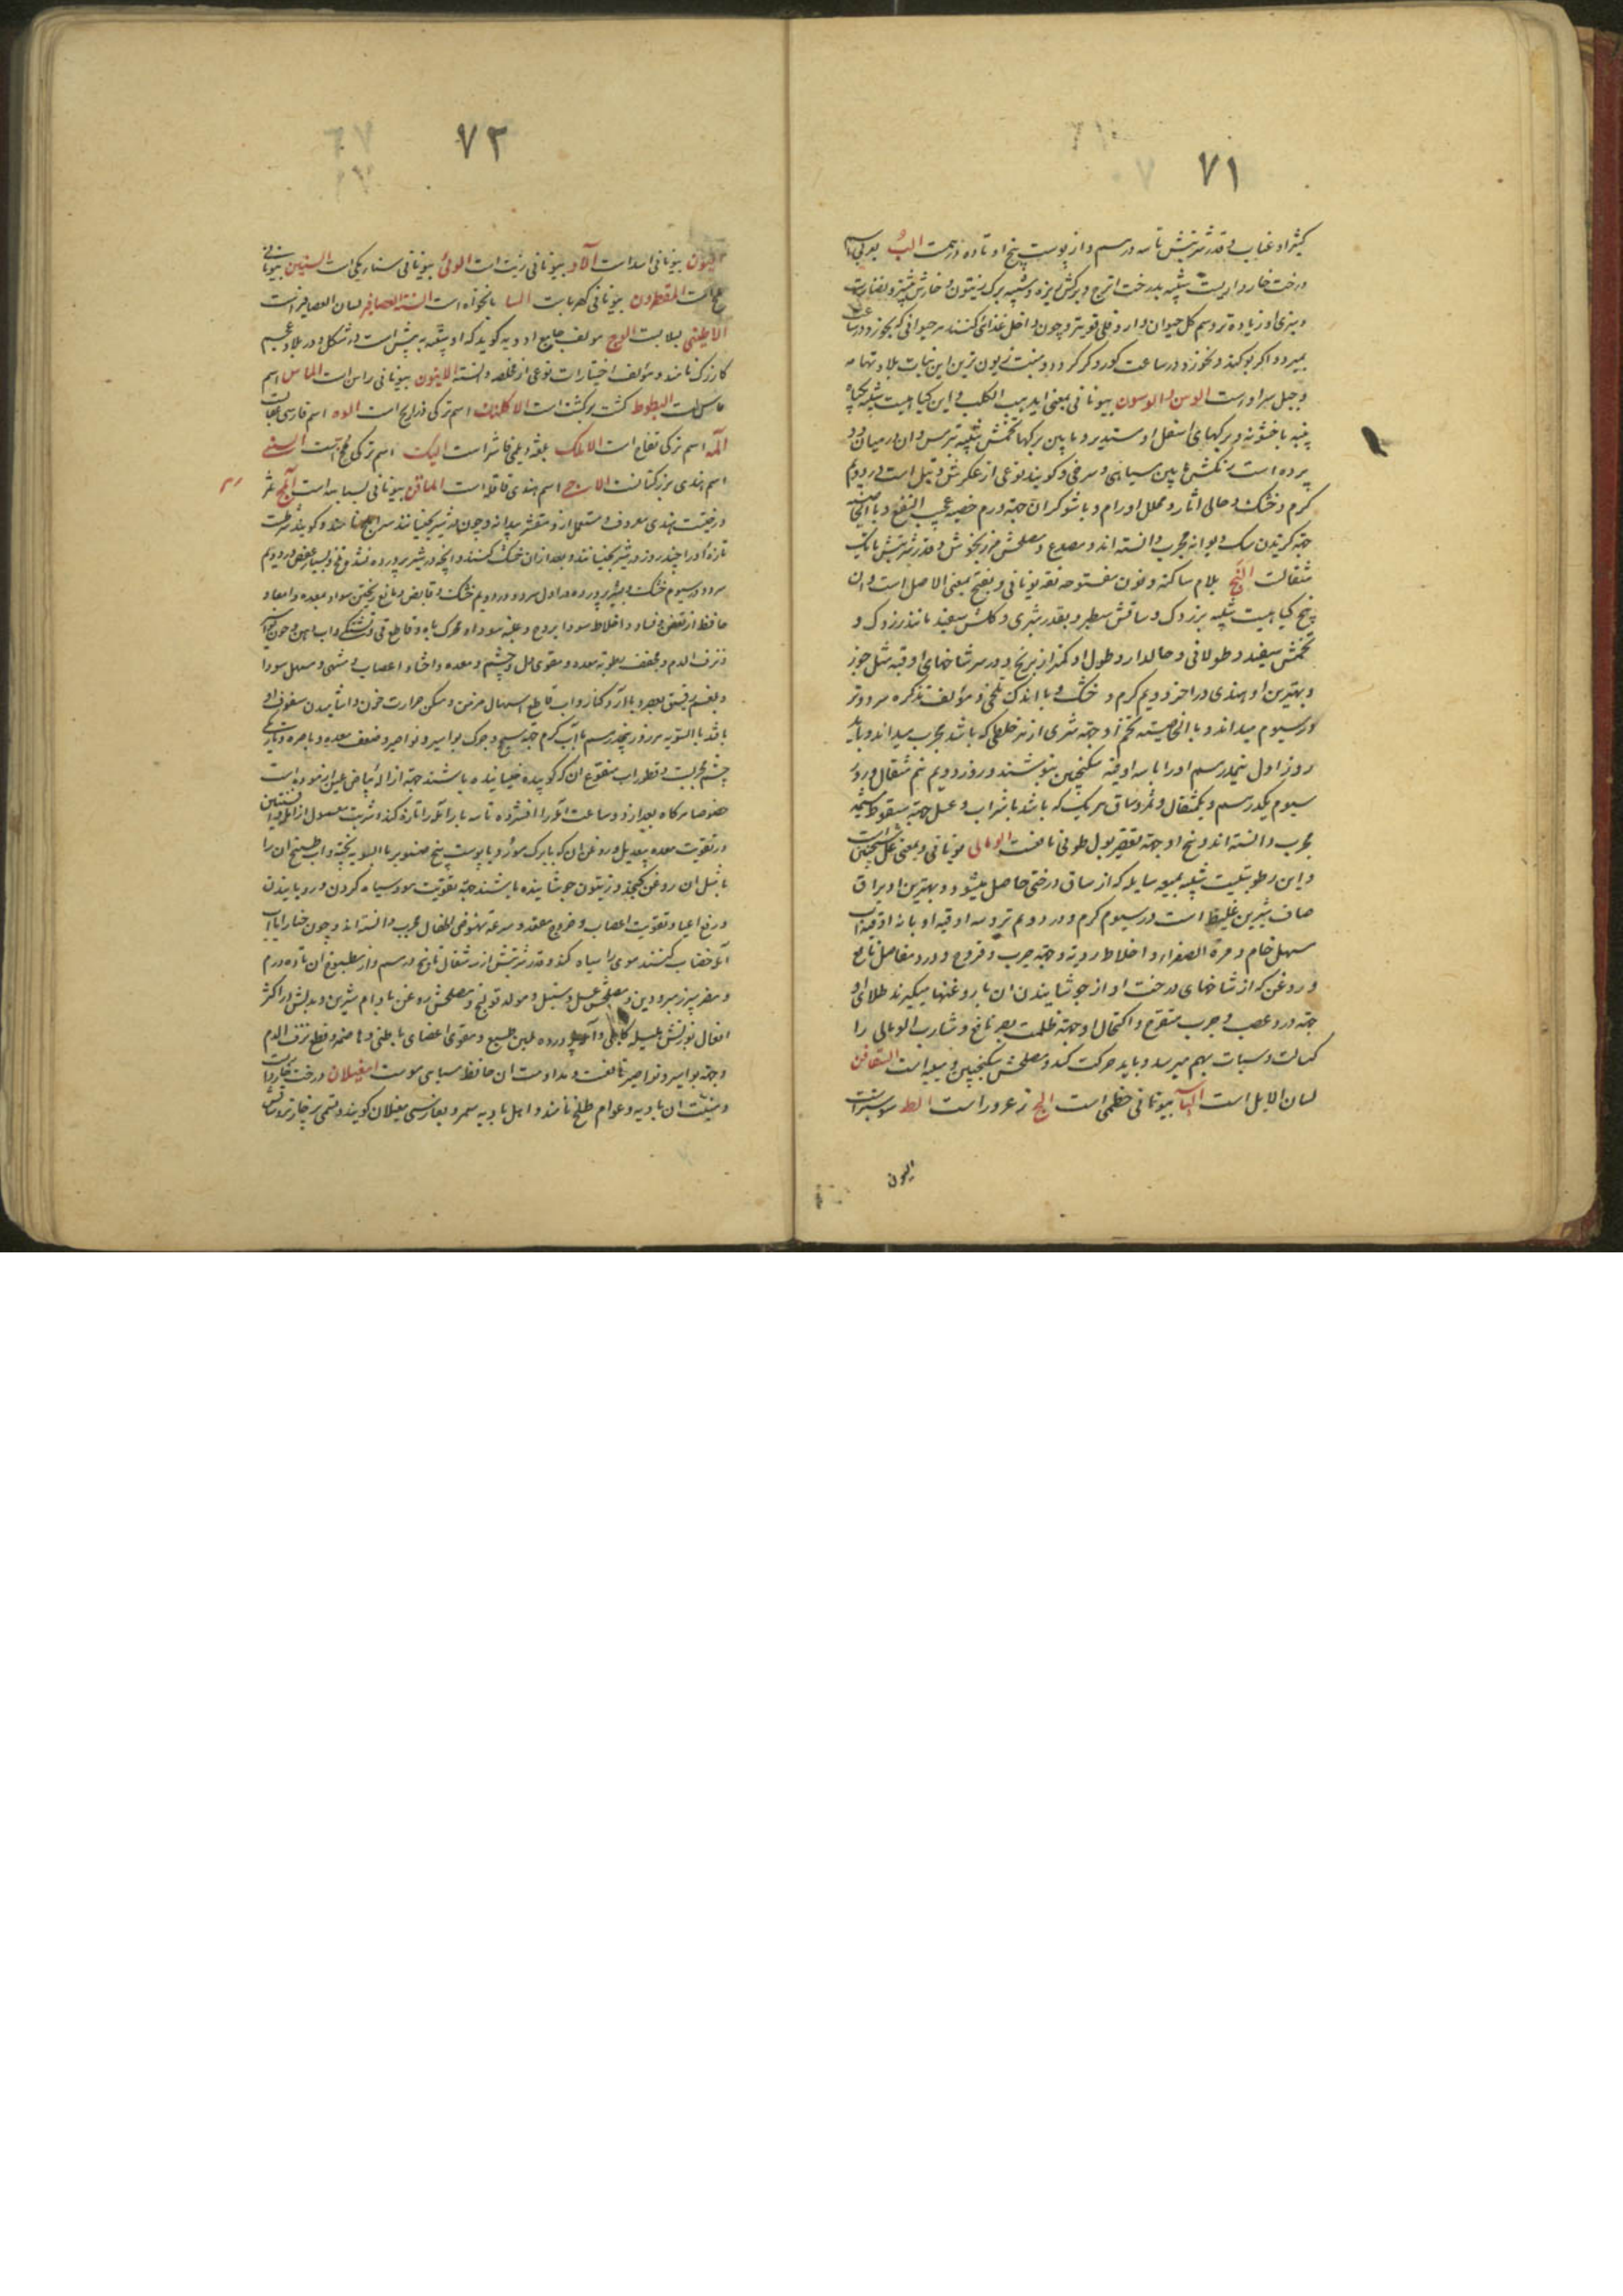 ۷۱
کثیراء و عناب و قدر شربتش تا سه درسم و از پوست بیخ او تا ده درهمست الب بعربی اسم
درخت خارداریست شبیه بدرخت اترج و برکش ریزه و شبیه ببرک زیتون و خارش
و سبزی او زیاده تر و سم کل حیوان دارد و جبلی قویتر و چون داخل غذائی کنند هر حیوانی که بخورد در ساعت
بمیرد و اکر بو کند و نخورد در ساعت کور و کر کردد و منبت زبون ترین این نبات بلاد تهامه
و جبل سراو رست الوسن و الوسون بیونانی بمعنی
پنبه با خشونة و برکهای اسفل او مستدیر و ما بین برکها تخمش شبیه بترمس و ان در میان دو
پرده است رنکش ما بین سیاهی و سرخی و کویند نوعی از عکرش و تیل است در دویم
کرم و خشک و جالی اثار و محلل اورام و با شوکران جهة ورم خصیه عجیب النفع و بالخاصیة
جهة کزیدن سک دیوانه مجرب دانسته اند و مصدع و مصلحش مرزنجوش و قدر شربتش تا یک
مثقالست النج بلام ساکنه و نون مفتوحه لغة یونانی و بفتح بمعنی الاصل است و ان
بیخ کیاهیست شبیه بزردک و ساقش سطبر و بقدر شبری و کلش سفید مانند زردک و
تخمش سفید و طولانی و خالدار و طول او کمتر از برنج و در سر شاخهای او قبه مثل جوز
و بهترین او هندی در اخر دویم کرم و خشک و با اندک تلخی و مؤلف تذکره سرد و تر
در سیوم میداند و بالخاصیة تخم او جهة شری از هر خلطی که باشد مجرب میداند و باید
روز اول نیمدرسم او را با سه اوقیه سکنجبین بنوشند و روز دویم نیم مثقال و روز
سیوم یکدرسم و یکمثقال و ثمر و ساق هر یک که باشد با شراب و عسل جهة سقوط مشیمه
مجرب دانسته اند و بیخ او جهة تقطیر بول طوفی نافعست الومالی یونانی و بمعنی عسل
و این رطوبتیست شبیه بمیعه سایله که از ساق درختی حاصل میشود و بهترین او براق
صاف شیرین غلیظ است در سیوم کرم و در دویم تر و سه اوقیه او با نه اوقیه اب
مسهل خام و مرة الصفرا و اخلاط ردیه و جهة جرب و قروح و درد مفاصل نافع
و روغن که از شاخهای درخت او از جوشانیدن ان با روغنها میکیرند طلای او
جهة درد عصب و جرب متقرح و اکتحال او جهة ظلمت بصر نافع و شارب الومالی را
کسالت و سبات بهم میرسد و باید حرکت کند و مصلحش سکنجبین و میبه است السقافن
لسان الابل است الیا بیونانی خطمی است الج زعرور است الط
الیون
۷۲
الیون بیونانی اسد است بیونانی زیت است الوئی بیونانی ستاریکی است السنین بیونانی
المقطرون بیونانی کهربا است السا نانخواه است السنة العصافیر لسان العصافیر است
الاطینی لبلابست الوج مؤلف جامع ادویه کوید که او شبیه به بیش است در شکل و در بلاد عجم
کازرک نامند و مؤلف اختیارات نوعی از مخلصه دانسته الاینون بیونانی راسن است الماس اسم
البطوط کشت برکشت است الاکلنک اسم ترکی ذراریح است الوه اسم فارسی عقابست
المه اسم ترکی تفاح است الاملک بلغة دیلمی فاشرا است الیک اسم ترکی السنی
اسم هندی بزر کتانست الاچی اسم هندی قاقله است المافن بیونانی لسان است آملج ثمر
درختیست هندی معروف و مستعمل از او مقشر بیدانه و چون در شیر بخیسانند شیر املج نامند و کویند شرطست
تازه او را چند روز در شیر بخیسانند و بعد از ان خشک کنند و انچه در شیر پرورده نشد تلخ و بسیار عفص و در دویم
سرد و در سیوم خشک و بشیر پرورده در اول سرد و در دویم خشک و قابض و مانع ریختن مواد بمعده و امعاء و
حافظ از تعفن و فساد و اخلاط سودا بروح و غلبه سودا و محرک باه و قاطع قی و تشنکی و لعاب دهن و خون
و نزف الدم و مجفف رطوبة معده و مقوی دل و چشم و معده و احشاء و اعصاب و مشهی و مسهل سودا
و بلغم رقیق بعصر و با ارد کنار و اب قاطع اسهال مزمن و مسکن حرارت خون و اشامیدن سفوف او
با قند بالسویه هر روز پنجدرسم با اب کرم جهة سحج و حرک بواسیر و نواصیر و ضعف معده و باصره و تاریکی
چشم مجربست و قطور اب منقوع ان که کوبیده خیسانیده باشند جهة ازاله بیاض عین ازموده است
خصوصا هر کاه بعد از دو ساعت املج را افشرده تا سه بار آمله را تازه کنند و شربت معمول از امله و افسنتین
در تقویت معده بیعدیل و روغن ان که با برک مورد و با پوست بیخ صنوبر بالسویه پخته و اب طبیخ ان را
با مثل ان روغن کنجد و زیتون جوشانیده باشند جهة تقویت مو و سیاه کردن و رویانیدن
و رفع اعیا و تقویت اعصاب و خروج مقعد و سرعت نهوض اطفال مجرب دانسته اند و چون حنا را باب
آمله خضاب کنند موی را سیاه کند و قدر شربتش از سه مثقال تا پنج درسم و از مطبوخ ان تا ده درم
و مضر سپرز مبرودین و مصلحش عسل و سنبل و مولد قولنج و مصلحش روغن بادام شیرین و بدلش در اکثر
افعال بوزنش هلیله کابلی و آمله پرورده ملین طبع و مقوی اعضای باطنی و هاضمه و قطع نزف الدم
و جهة بواسیر و نواصیر نافعست و مداومت ان حافظ سیاهی موست امغیلان درخت
و منبت ان بادیه و عوام طلح نامند و اهل بادیه سمر و بفارسی مغیلان کویند و قسمی بیخار تر و ساقش